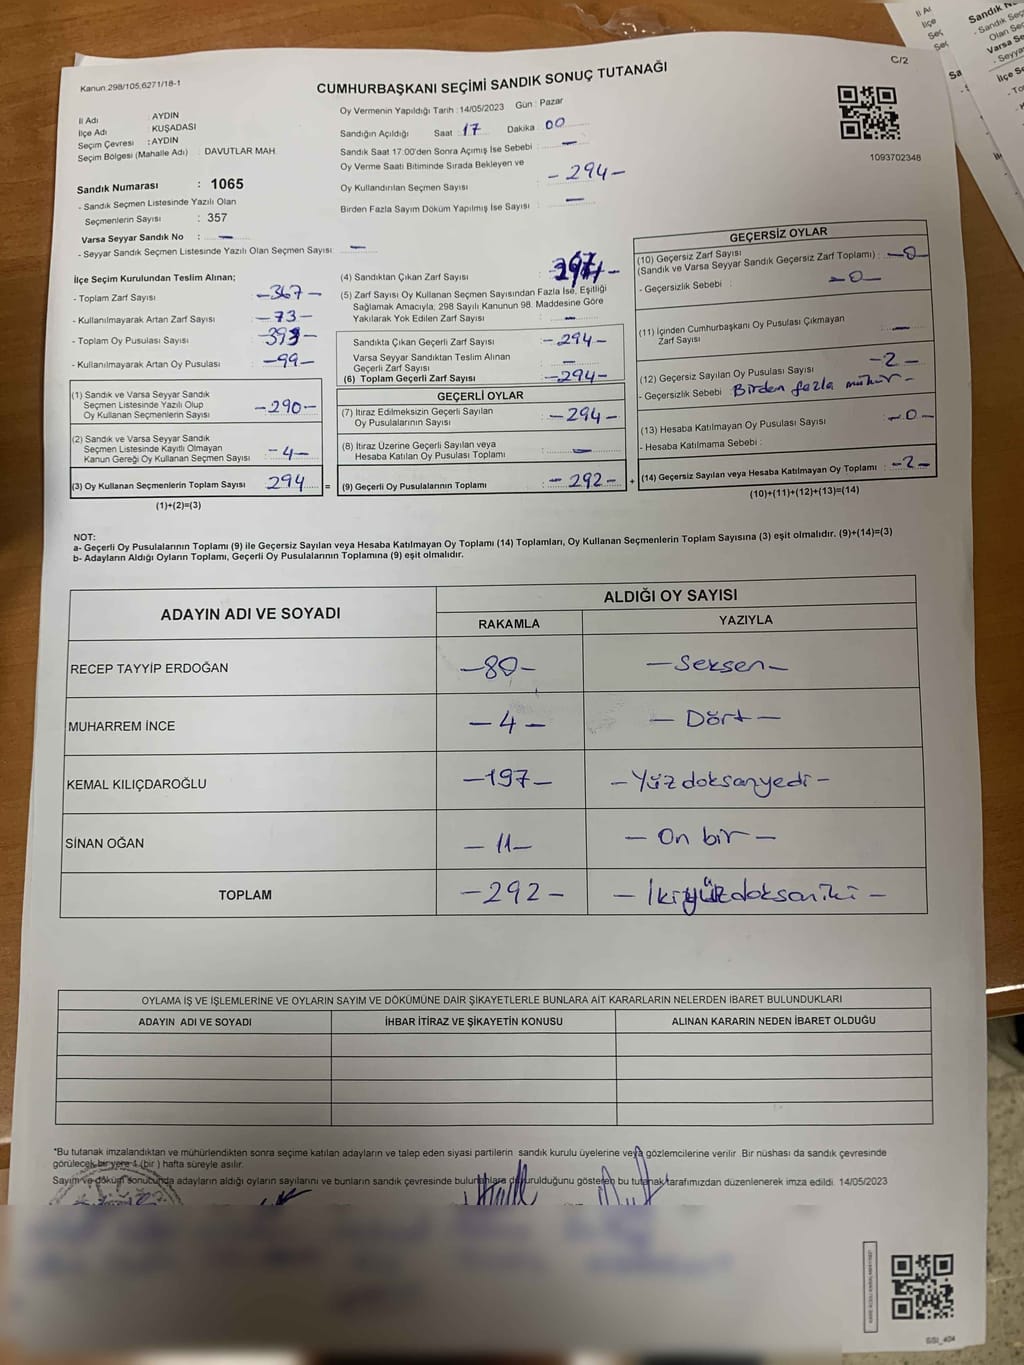 Kanun:298/105,6271/18-1
CUMHURBAŞKANI SEÇİMİ SANDIK SONUÇ TUTANAĞI
C/2
İl Adı : AYDIN
İlçe Adı : KUŞADASI
Seçim Çevresi : AYDIN
Seçim Bölgesi (Mahalle Adı) : DAVUTLAR MAH.
Sandık Numarası : 1065
- Sandık Seçmen Listesinde Yazılı Olan
Seçmenlerin Sayısı : 357
Varsa Seyyar Sandık No : —
- Seyyar Sandık Seçmen Listesinde Yazılı Olan Seçmen Sayısı: —
Oy Vermenin Yapıldığı Tarih : 14/05/2023 Gün : Pazar
Sandığın Açıldığı Saat : 17 Dakika : 00
Sandık Saat 17:00'den Sonra Açımış İse Sebebi : —
Oy Verme Saati Bitiminde Sırada Bekleyen ve
Oy Kullandırılan Seçmen Sayısı : -294-
Birden Fazla Sayım Döküm Yapılmış İse Sayısı : —
1093702348
İlçe Seçim Kurulundan Teslim Alınan;
- Toplam Zarf Sayısı : -367-
- Kullanılmayarak Artan Zarf Sayısı : -73-
- Toplam Oy Pusulası Sayısı : -393-
- Kullanılmayarak Artan Oy Pusulası : -99-
(1) Sandık ve Varsa Seyyar Sandık
Seçmen Listesinde Yazılı Olup
Oy Kullanan Seçmenlerin Sayısı : -290-
(2) Sandık ve Varsa Seyyar Sandık
Seçmen Listesinde Kayıtlı Olmayan
Kanun Gereği Oy Kullanan Seçmen Sayısı : -4-
(3) Oy Kullanan Seçmenlerin Toplam Sayısı : 294 =
(1)+(2)=(3)
(4) Sandıktan Çıkan Zarf Sayısı :
(5) Zarf Sayısı Oy Kullanan Seçmen Sayısından Fazla İse, Eşitliği
Sağlamak Amacıyla, 298 Sayılı Kanunun 98. Maddesine Göre
Yakılarak Yok Edilen Zarf Sayısı : —
Sandıkta Çıkan Geçerli Zarf Sayısı : -294-
Varsa Seyyar Sandıktan Teslim Alınan
Geçerli Zarf Sayısı : —
(6) Toplam Geçerli Zarf Sayısı : -294-
GEÇERLİ OYLAR
(7) İtiraz Edilmeksizin Geçerli Sayılan
Oy Pusulalarının Sayısı : -294-
(8) İtiraz Üzerine Geçerli Sayılan veya
Hesaba Katılan Oy Pusulası Toplamı : —
(9) Geçerli Oy Pusulalarının Toplamı : -292- +
GEÇERSİZ OYLAR
(10) Geçersiz Zarf Sayısı
(Sandık ve Varsa Seyyar Sandık Geçersiz Zarf Toplamı) : -0-
- Geçersizlik Sebebi : -0-
(11) İçinden Cumhurbaşkanı Oy Pusulası Çıkmayan
Zarf Sayısı : —
(12) Geçersiz Sayılan Oy Pusulası Sayısı : -2-
- Geçersizlik Sebebi : Birden fazla mühür-
(13) Hesaba Katılmayan Oy Pusulası Sayısı : -0-
- Hesaba Katılmama Sebebi :
(14) Geçersiz Sayılan veya Hesaba Katılmayan Oy Toplamı : -2-
(10)+(11)+(12)+(13)=(14)
NOT:
a- Geçerli Oy Pusulalarının Toplamı (9) ile Geçersiz Sayılan veya Hesaba Katılmayan Oy Toplamı (14) Toplamları, Oy Kullanan Seçmenlerin Toplam Sayısına (3) eşit olmalıdır. (9)+(14)=(3)
b- Adayların Aldığı Oyların Toplamı, Geçerli Oy Pusulalarının Toplamına (9) eşit olmalıdır.
ADAYIN ADI VE SOYADI
ALDIĞI OY SAYISI
RAKAMLA YAZIYLA
RECEP TAYYİP ERDOĞAN -80- -Seksen-
MUHARREM İNCE -4- -Dört-
KEMAL KILIÇDAROĞLU -197- -Yüzdoksanyedi-
SİNAN OĞAN -11- -On bir-
TOPLAM -292- -İkiyüzdoksaniki-
OYLAMA İŞ VE İŞLEMLERİNE VE OYLARIN SAYIM VE DÖKÜMÜNE DAİR ŞİKAYETLERLE BUNLARA AİT KARARLARIN NELERDEN İBARET BULUNDUKLARI
ADAYIN ADI VE SOYADI İHBAR İTİRAZ VE ŞİKAYETİN KONUSU ALINAN KARARIN NEDEN İBARET OLDUĞU
*Bu tutanak imzalandıktan ve mühürlendikten sonra seçime katılan adayların ve talep eden siyasi partilerin sandık kurulu üyelerine veya gözlemcilerine verilir. Bir nüshası da sandık çevresinde
görülecek bir yere 1 (bir ) hafta süreyle asılır.
Sayım ve döküm sonucunda adayların aldığı oyların sayılarını ve bunların sandık çevresinde bulunanlara duyurulduğunu gösteren bu tutanak tarafımızdan düzenlenerek imza edildi. 14/05/2023
SSI_404